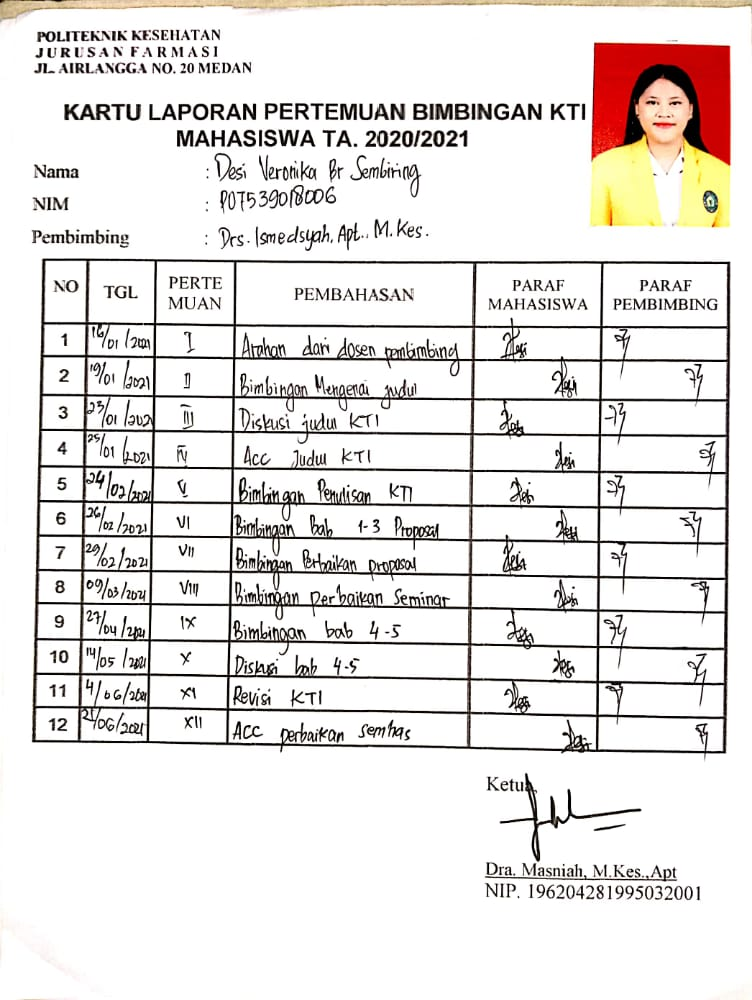 POLITEKNIK KESEHATAN
JURUSAN FARMASI
JL. AIRLANGGA NO. 20 MEDAN
KARTU LAPORAN PERTEMUAN BIMBINGAN KTI
MAHASISWA TA. 2020/2021
Nama : Desi Veronika Br Sembiring
NIM : P07539018006
Pembimbing : Drs. Ismedsyah, Apt., M.Kes.
NO TGL PERTE MUAN PEMBAHASAN PARAF MAHASISWA PARAF PEMBIMBING
1 16/01/2021 I Arahan dari dosen pembimbing Desi
2 19/01/2021 II Bimbingan Mengenai judul Desi
3 23/01/2021 III Diskusi judul KTI Desi
4 25/01/2021 IV Acc Judul KTI Desi
5 24/02/2021 V Bimbingan Penulisan KTI Desi
6 26/02/2021 VI Bimbingan bab 1-3 Proposal Desi
7 /02/2021 VII Bimbingan Perbaikan proposal Desi
8 09/03/2021 VIII Bimbingan perbaikan Seminar Desi
9 27/04/2021 IX Bimbingan bab 4-5 Desi
10 14/05/2021 X Diskusi bab 4-5 Desi
11 4/06/2021 XI Revisi KTI Desi
12 /06/2021 XII ACC perbaikan semhas Desi
Ketua,
Dra. Masniah, M.Kes.,Apt
NIP. 196204281995032001